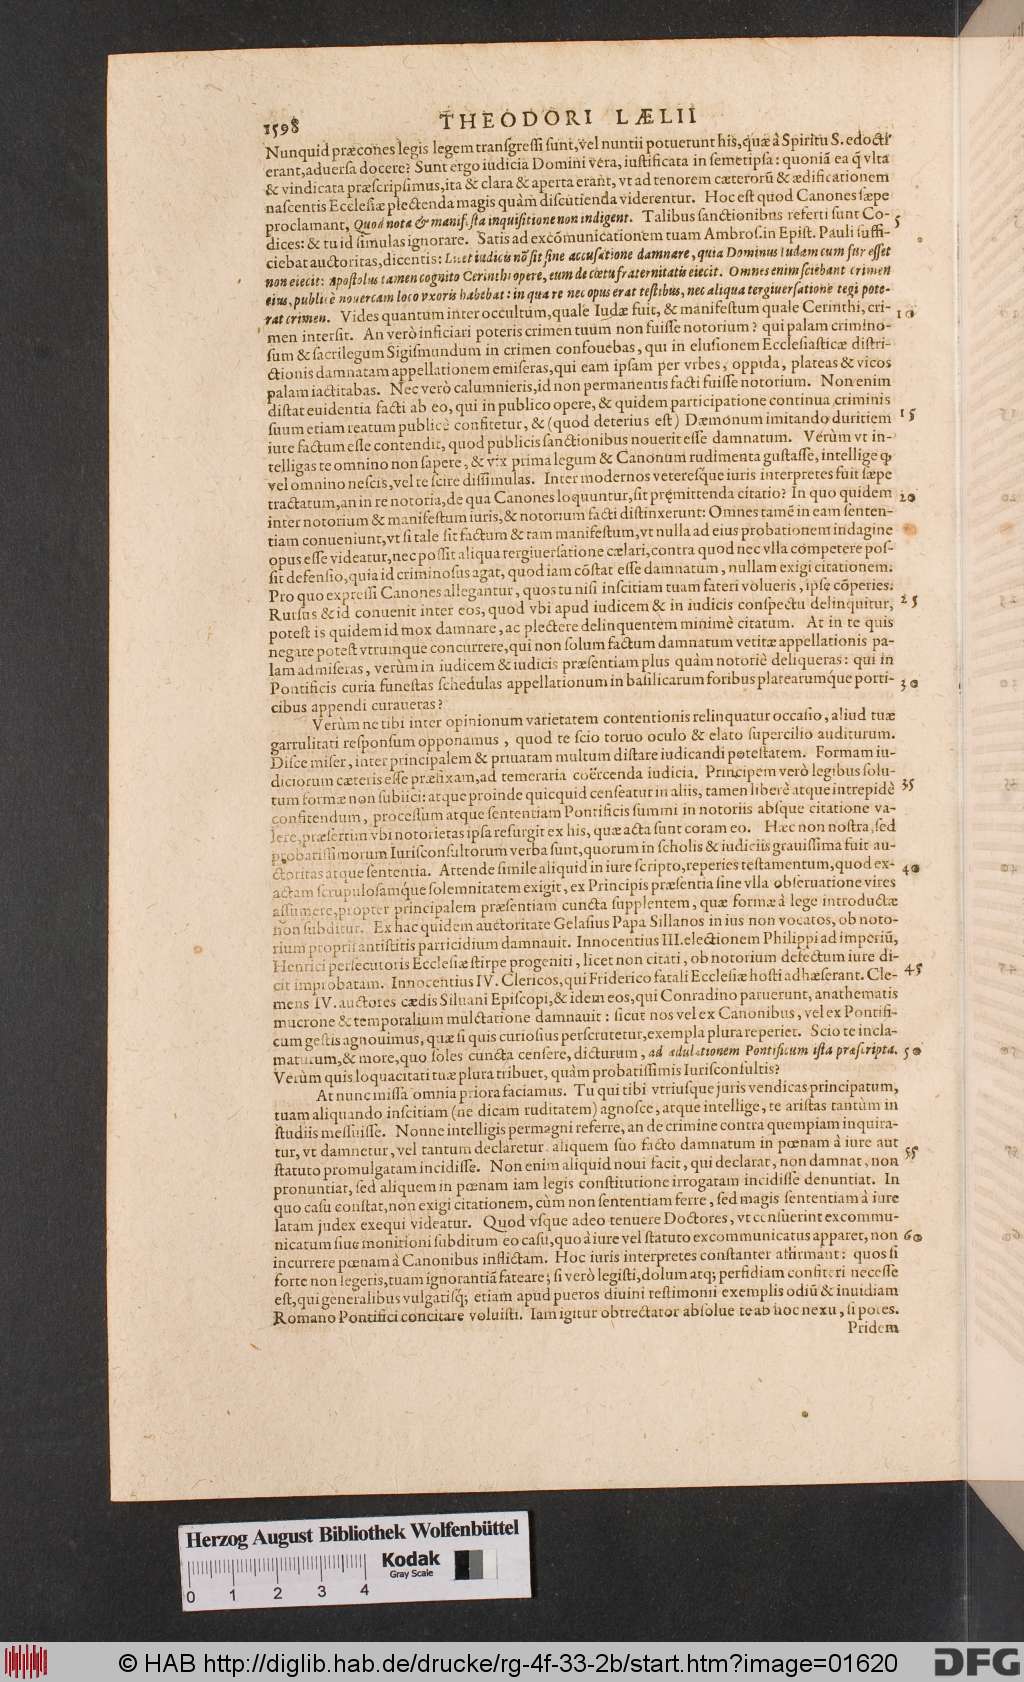 1598 THEODORI LÆLII
Nunquid præcones legis legem transgressi sunt, vel nuntii potuerunt his, quæ à Spiritu S. edocti
erant, aduersa docere? Sunt ergo iudicia Domini vera, iustificata in semetipsa: quoniã ea q̃ vlta
& vindicata præscripsimus, ita & clara & aperta erant, vt ad tenorem cæterorũ & ædificationem
nascentis Ecclesiæ plectenda magis quàm discutienda viderentur. Hoc est quod Canones sæpe
proclamant, Quod nota & manifesta inquisitione non indigent. Talibus sanctionibus referti sunt Co- 5
dices: & tu id simulas ignorare. Satis ad excõmunicationem tuam Ambros. in Epist. Pauli suffi-
ciebat auctoritas, dicentis: Licet iudicis nõ sit sine accusatione damnare, quia Dominus Iudam cum fur esset
non eiecit: Apostolus tamen cognito Cerinthi opere, eum de cœtu fraternitatis eiecit. Omnes enim sciebant crimen
eius, publicè nouercam loco vxoris habebat: in qua re nec opus erat testibus, nec aliqua tergiuersatione tegi pote-
rat crimen. Vides quantum inter occultum, quale Iudæ fuit, & manifestum quale Cerinthi, cri- 10
men intersit. An verò inficiari poteris crimen tuum non fuisse notorium? qui palam crimino-
sum & sacrilegum Sigismundum in crimen confouebas, qui in elusionem Ecclesiasticæ distri-
ctionis damnatam appellationem emiseras, qui eam ipsam per vrbes, oppida, plateas & vicos
palam iactitabas. Nec verò calumnieris, id non permanentis facti fuisse notorium. Non enim
distat euidentia facti ab eo, qui in publico opere, & quidem participatione continua criminis
suum etiam reatum publicè confitetur, & (quod deterius est) Dæmonum imitando duritiem 15
iure factum esse contendit, quod publicis sanctionibus nouerit esse damnatum. Verùm vt in-
telligas te omnino non sapere, & vix prima legum & Canonum rudimenta gustasse, intellige q
vel omnino nescis, vel te scire dissimulas. Inter modernos veteresq́ue iuris interpretes fuit sæpe
tractatum, an in re notoria, de qua Canones loquuntur, sit prẹmittenda citatio? In quo quidem 20
inter notorium & manifestum iuris, & notorium facti distinxerunt: Omnes tamẽ in eam senten-
tiam conueniunt, vt si tale sit factum & tam manifestum, vt nulla ad eius probationem indagine
opus esse videatur, nec possit aliqua tergiuersatione cælari, contra quod nec vlla competere pos-
sit defensio, quia id criminosus agat, quod iam cõstat esse damnatum, nullam exigi citationem.
Pro quo expressi Canones allegantur, quos tu nisi inscitiam tuam fateri volueris, ipse cõperies.
Rursus & id conuenit inter eos, quod vbi apud iudicem & in iudicis conspectu delinquitur, 25
potest is quidem id mox damnare, ac plectere delinquentem minimè citatum. At in te quis
negare potest vtrumque concurrere, qui non solum factum damnatum vetitæ appellationis pa-
lam admiseras, verùm in iudicem & iudicis præsentiam plus quàm notoriè deliqueras: qui in
Pontificis curia funestas schedulas appellationum in basilicarum foribus platearumque porti- 30
cibus appendi curaueras?
Verùm ne tibi inter opinionum varietatem contentionis relinquatur occasio, aliud tuæ
garrulitati responsum opponamus, quod te scio toruo oculo & elato supercilio auditurum.
Disce miser, inter principalem & priuatam multum distare iudicandi potestatem. Formam iu-
diciorum cæteris esse præfixam, ad temeraria coërcenda iudicia. Principem verò legibus solu-
tum formæ non subiici: atque proinde quicquid censeatur in aliis, tamen liberè atque intrepidè 35
confitendum, processum atque sententiam Pontificis summi in notoriis absque citatione va-
lere, præsertim vbi notorietas ipsa resurgit ex his, quæ acta sunt coram eo. Hæc non nostra, sed
probatissimorum Iurisconsultorum verba sunt, quorum in scholis & iudiciis grauissima fuit au-
ctoritas atque sententia. Attende simile aliquid in iure scripto, reperies testamentum, quod ex-
actam scrupulosamque solemnitatem exigit, ex Principis præsentia sine vlla obseruatione vires 40
assumere, propter principalem præsentiam cuncta supplentem, quæ formæ à lege introductæ
nõn subditur. Ex hac quidem auctoritate Gelasius Papa Sillanos in ius non vocatos, ob noto-
rium proprii antistitis parricidium damnauit. Innocentius III. electionem Philippi ad imperiũ,
Henrici persecutoris Ecclesiæ stirpe progeniti, licet non citati, ob notorium defectum iure di-
cit improbatam. Innocentius IV. Clericos, qui Friderico fatali Ecclesiæ hosti adhæserant. Cle- 45
mens IV. auctores cædis Siluani Episcopi, & idem eos, qui Conradino paruerunt, anathematis
mucrone & temporalium mulctatione damnauit: sicut nos vel ex Canonibus, vel ex Pontifi-
cum gestis agnouimus, quæ si quis curiosius perscrutetur, exempla plura reperiet. Scio te incla-
maturum, & more, quo soles cuncta censere, dicturum, ad adulationem Pontificum ista præscripta. 50
Verùm quis loquacitati tuæ plura tribuet, quàm probatissimis Iurisconsultis?
At nunc missa omnia priora faciamus. Tu qui tibi vtriusque juris vendicas principatum,
tuam aliquando inscitiam (ne dicam ruditatem) agnosce, atque intellige, te aristas tantùm in
studiis messuisse. Nonne intelligis permagni referre, an de crimine contra quempiam inquira-
tur, vt damnetur, vel tantum declaretur aliquem suo facto damnatum in pœnam à iure aut
statuto promulgatam incidisse. Non enim aliquid noui facit, qui declarat, non damnat, non 55
pronuntiat, sed aliquem in pœnam iam legis constitutione irrogatam incidisse denuntiat. In
quo casu constat, non exigi citationem, cùm non sententiam ferre, sed magis sententiam à iure
latam judex exequi videatur. Quod vsque adeo tenuere Doctores, vt censuerint excommu-
nicatum siue monitioni subditum eo casu, quo à iure vel statuto excommunicatus apparet, non 60
incurrere pœnam à Canonibus inflictam. Hoc iuris interpretes constanter affirmant: quos si
forte non legeris, tuam ignorantiã fateare; si verò legisti, dolum atq; perfidiam confiteri necesse
est, qui generalibus vulgatisq́; etiam apud pueros diuini testimonii exemplis odiũ & inuidiam
Romano Pontifici concitare voluisti. Iam igitur obtrectator absolue te ab hoc nexu, si potes.
Pridem
Herzog August Bibliothek Wolfenbüttel
Kodak
Gray Scale
0 1 2 3 4
© HAB http://diglib.hab.de/drucke/rg-4f-33-2b/start.htm?image=01620
DFG